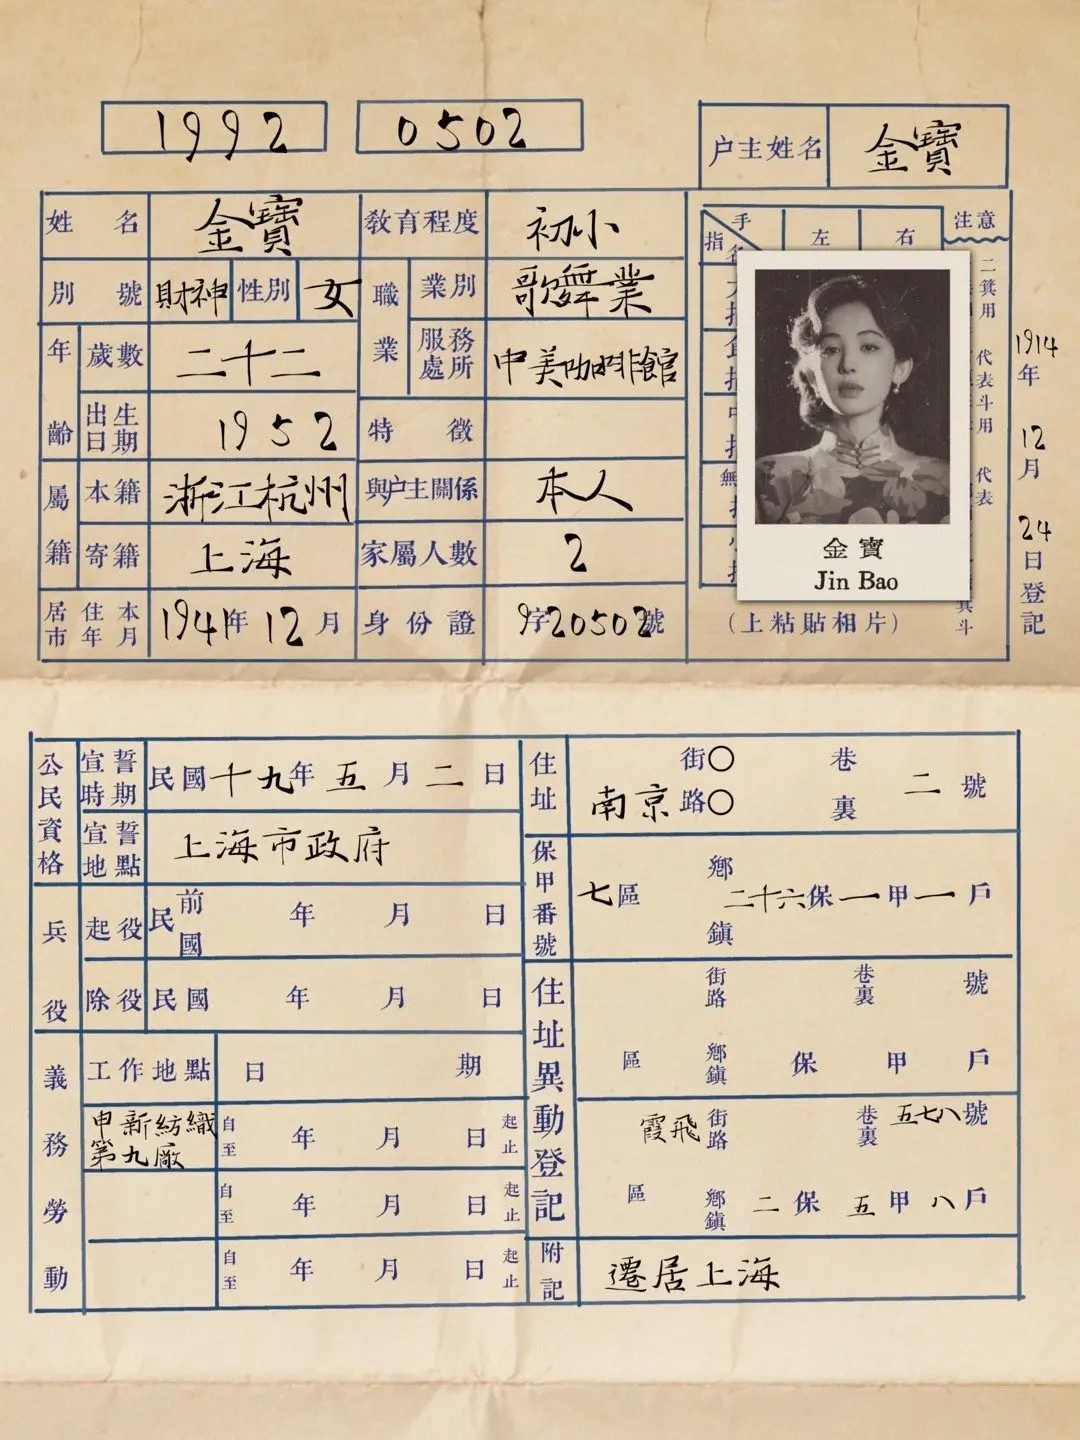 1992 0502
户主姓名 金寶
姓名 金寶 教育程度 初小
別號 財神 性別 女 職業 業別 歌舞業
年齡 歲數 二十二 服務處所 中美咖啡館
出生日期 1952 特徵
屬籍 本籍 浙江杭州 與户主關係 本人
寄籍 上海 家屬人數 2
居住本市年月 1941年12月 身份證 9字20502號
手指 左 右
注意
二箕用
代表斗用
代表
箕斗
金寶
Jin Bao
(上粘貼相片)
1914年12月24日登記
公民資格 宣誓時期 民國十九年五月二日
宣誓地點 上海市政府
兵役 起役 民前國 年 月 日
除役 民國 年 月 日
義務勞動 工作地點 日期
申新紡織第九廠 自至 年 月 日 起止
自至 年 月 日 起止
自至 年 月 日 起止
住址 南京 街〇路〇 巷裏 二號
保甲番號 七區 鄉鎮 二十六保一甲一戶
住址異動登記 街路 巷裏 號
區 鄉鎮 保 甲 戶
霞飛 街路 巷裏 五七八號
區 鄉鎮 二保 五甲 八戶
附記 遷居上海